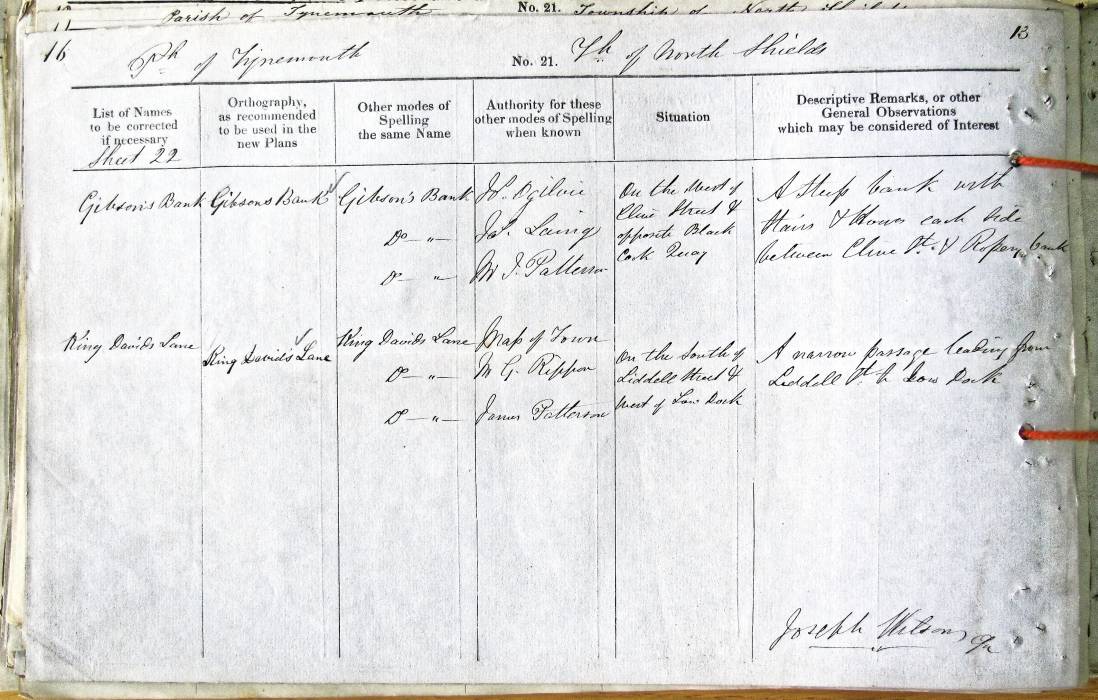 Parish of Tynemouth No. 21. Township of North Shields
16 Ph of Tynemouth No. 21. Th of North Shields 13
List of Names to be corrected if necessary
Orthography, as recommended to be used in the new Plans
Other modes of Spelling the same Name
Authority for these other modes of Spelling when known
Situation
Descriptive Remarks, or other General Observations which may be considered of Interest
Sheet 22
Gibson's Bank
Gibsons Bank
Gibson's Bank
Do — " —
Do — " —
W. Ogilvie
Jas. Laing
W J. Patterson
On the West of
Clive Street &
opposite Black
Cock Quay
A Steep bank with
Stairs & Houses each side
between Clive St. & Ropery bank
King Davids Lane
King David's Lane
King Davids Lane
Do — " —
Do — " —
Map of Town
M G. Rippon
James Patterson
On the South of
Liddell Street &
West of Low Dock
A narrow passage leading from
Liddell St. to Low Dock
Joseph Wilson c/a